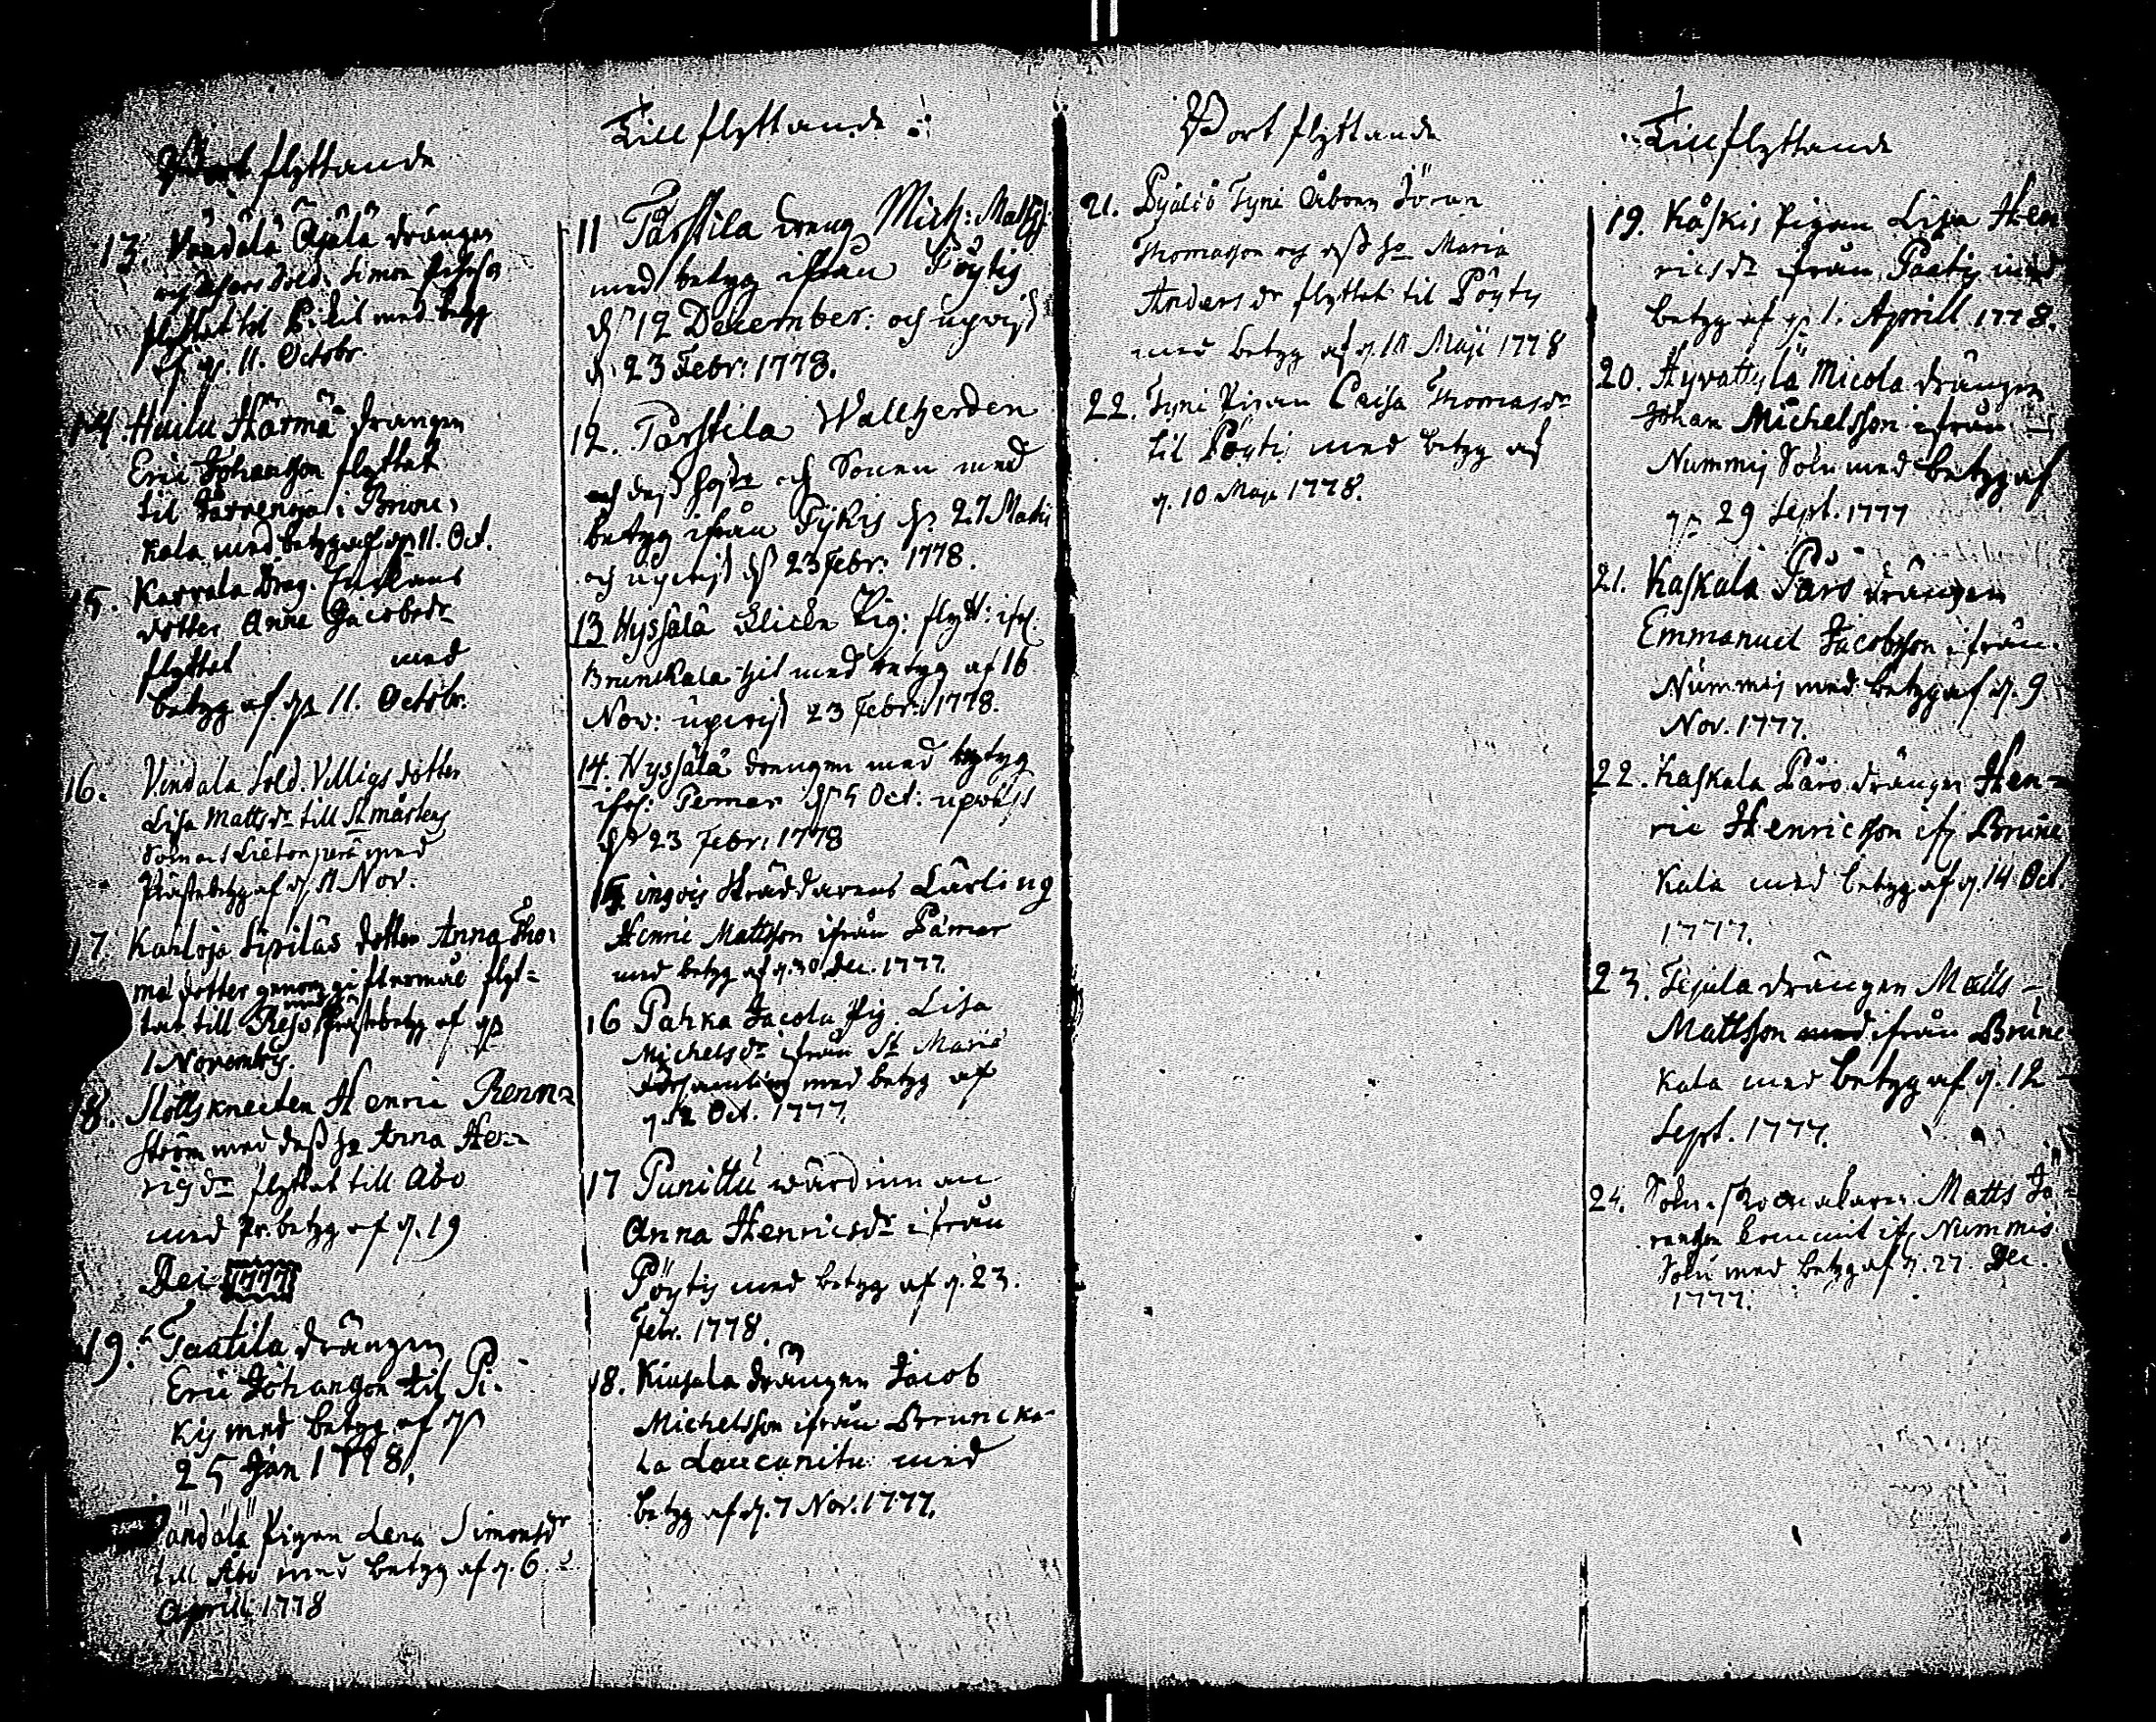 Bort flyttande
13. Vändälä Ojälä drängen
Sold. Simon
flyttat til Pikis med betyg
af d. 11. Octobr.
14. Huilu Härmä drängen
Eric Johansson flyttat
til i Brune,
kala med betyg af d. 11. Oct.
15. Karvala Drag.
dotter Anna Jacobsdr
flyttat med
betyg af d. 11. Octobr.
16. Vendala Sold. Villigs dotter
Lisa Mattsdr till St mårtens
Sokn med
Prästebetyg af d. Nov.
17. Karloja Sipiläs dotter Anna Tho,
mæ dotter genom giftermål flyt=
tat till Reso med prästebetyg af d.
1 Novembris.
18. Slottsknecten Henric Renn=
ström med dess h. Anna Hen=
ricsdr flyttat till Åbo
med Pr. betyg af d. 19
Dec. 1777
19. Taatila drängen
Eric Johansson til Pi-
kis med betyg af d.
25 Jan 1778.
ändälä Pigan Lena Simonsdr
till Åbo med betyg af d. 6.
Aprill 1778
Till flyttande
11 Tårstila dreng Mich: Matts:
med betyg ifrån Pöytis
d. 12 December: och upvist
d. 23 Febr: 1778.
12. Tårstila Wallherden
och dess hustr och Sonen med
betyg ifrån Pijkis d. 27 Martij
och upvist d. 23 Febr: 1778.
13 Hyssälä Pig: flytt: ifr.
Brunskala hit med betyg af 16
Nov: upvist 23 Febr: 1778.
14. Hyssälä drengen med betyg
ifr: Pemar d. 5 Oct: upvist
d. 23 Febr: 1778
15. ingois Skräddarens Lärling
Henric Mattsson ifrån Pämar
med betyg af d. 30 Dec. 1777.
16 Pahka Jacola Pig Lisa
Michelsdr ifrån St Mariæ
Församling med betyg af
d. 2 Oct. 1777.
17 Punittu wärdinnan
Anna Henricsdr ifrån
Pöytis med betyg af d. 23.
Febr. 1778.
18. Kiusala drängen Jacob
Michelsson ifrån Bruncka-
la Laucanitu med
betyg af d. 7 Nov. 1777.
Bort flyttande
21. Tyni Åboen Jöran
Thomasson och dess h. Maria
Andersdr flyttat til Pöyty
med betyg af d. 10 Maji 1778
22. Tyni Pigan Caisa Thomasdr
til Pöytis med betyg af
d. 10 Maji 1778.
Till flyttande
19. Kåskis Pigan Lisa Hen
ricsdr ifrån Paatis med
betyg af d. 1. Aprill 1778.
20. Hyvättylä Micola drängen
Johan Michelsson ifrån
Nummis Sokn med betyg af
d. 29 Sept. 1777
21. Kaskala Påvo drängen
Emmanuel Jacobsson ifrån
Nummis med betyg af d. 9
Nov. 1777.
22. Kaskala Påvo drängen Hen=
ric Henricsson ifr. Brune
kala med betyg af d. 14 Oct.
1777.
23. Tejula drängen Matts
Mattsson ifrån Brune
kala med betyg af d. 12
Sept. 1777.
24. Sokn skomakaren Matts Jö=
ransson kommit ifr. Nummis
Sokn med betyg af d. 27. Dec.
1777.